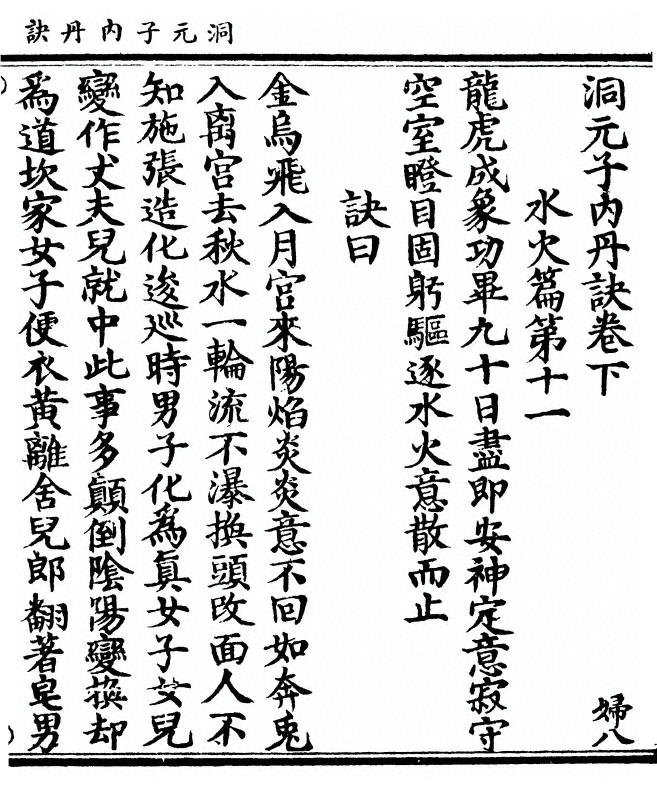 洞元子內丹訣
洞元子內丹訣卷下
婦八
水火篇第十一
龍虎成象功畢九十日盡即安神定意寂守
空室瞪目固躬驅逐水火意散而止
訣曰
金烏飛入月宮來陽焰炎炎意不回如奔兎
入离宮去秋水一輪流不瀑換頭改面人不
知施張造化逡巡時男子化爲真女子女兒
變作丈夫兒就中此事多顛倒陰陽變換却
爲道坎家女子便衣黃離舍兒郎翻著皂男